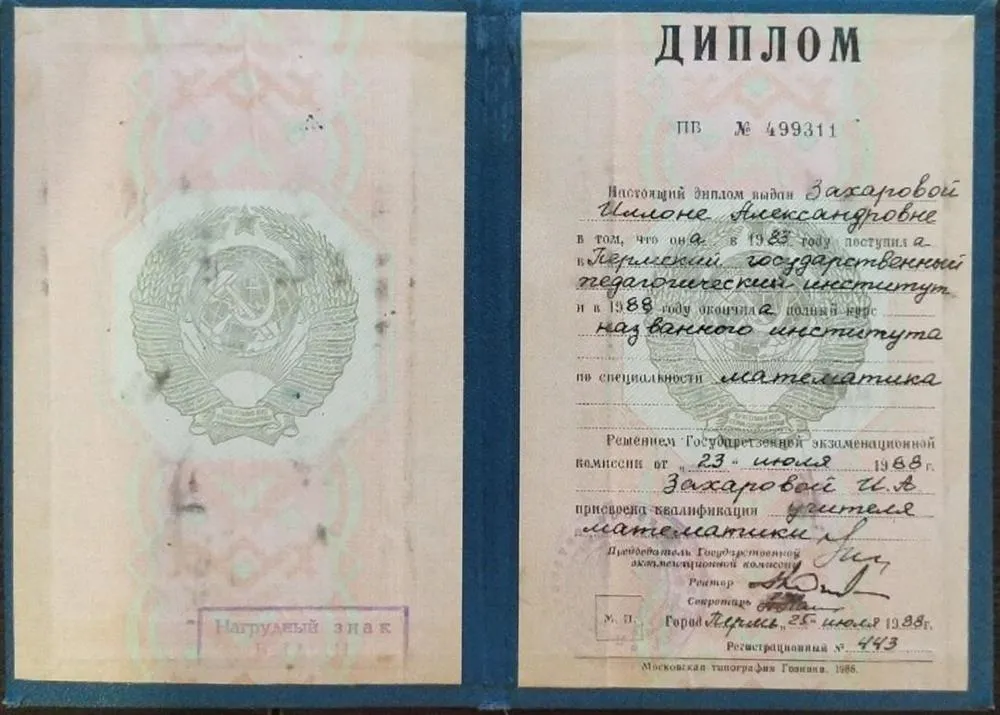 Нагрудный знак
ДИПЛОМ
ПВ № 499311
Настоящий диплом выдан Захаровой
Иллоне Александровне
в том, что она в 1983 году поступила
в Пермский государственный
педагогический институт
и в 1988 году окончила полный курс
названного института
по специальности математика
Решением Государственной экзаменационной
комиссии от „23“ июля 1988 г.
Захаровой И.А
присвоена квалификация учителя
математики
Председатель Государственной
экзаменационной комиссии
Ректор
Секретарь
М. П.
Город Пермь „25“ июля 1988г.
Регистрационный № 443
Московская типография Гознака. 1988.